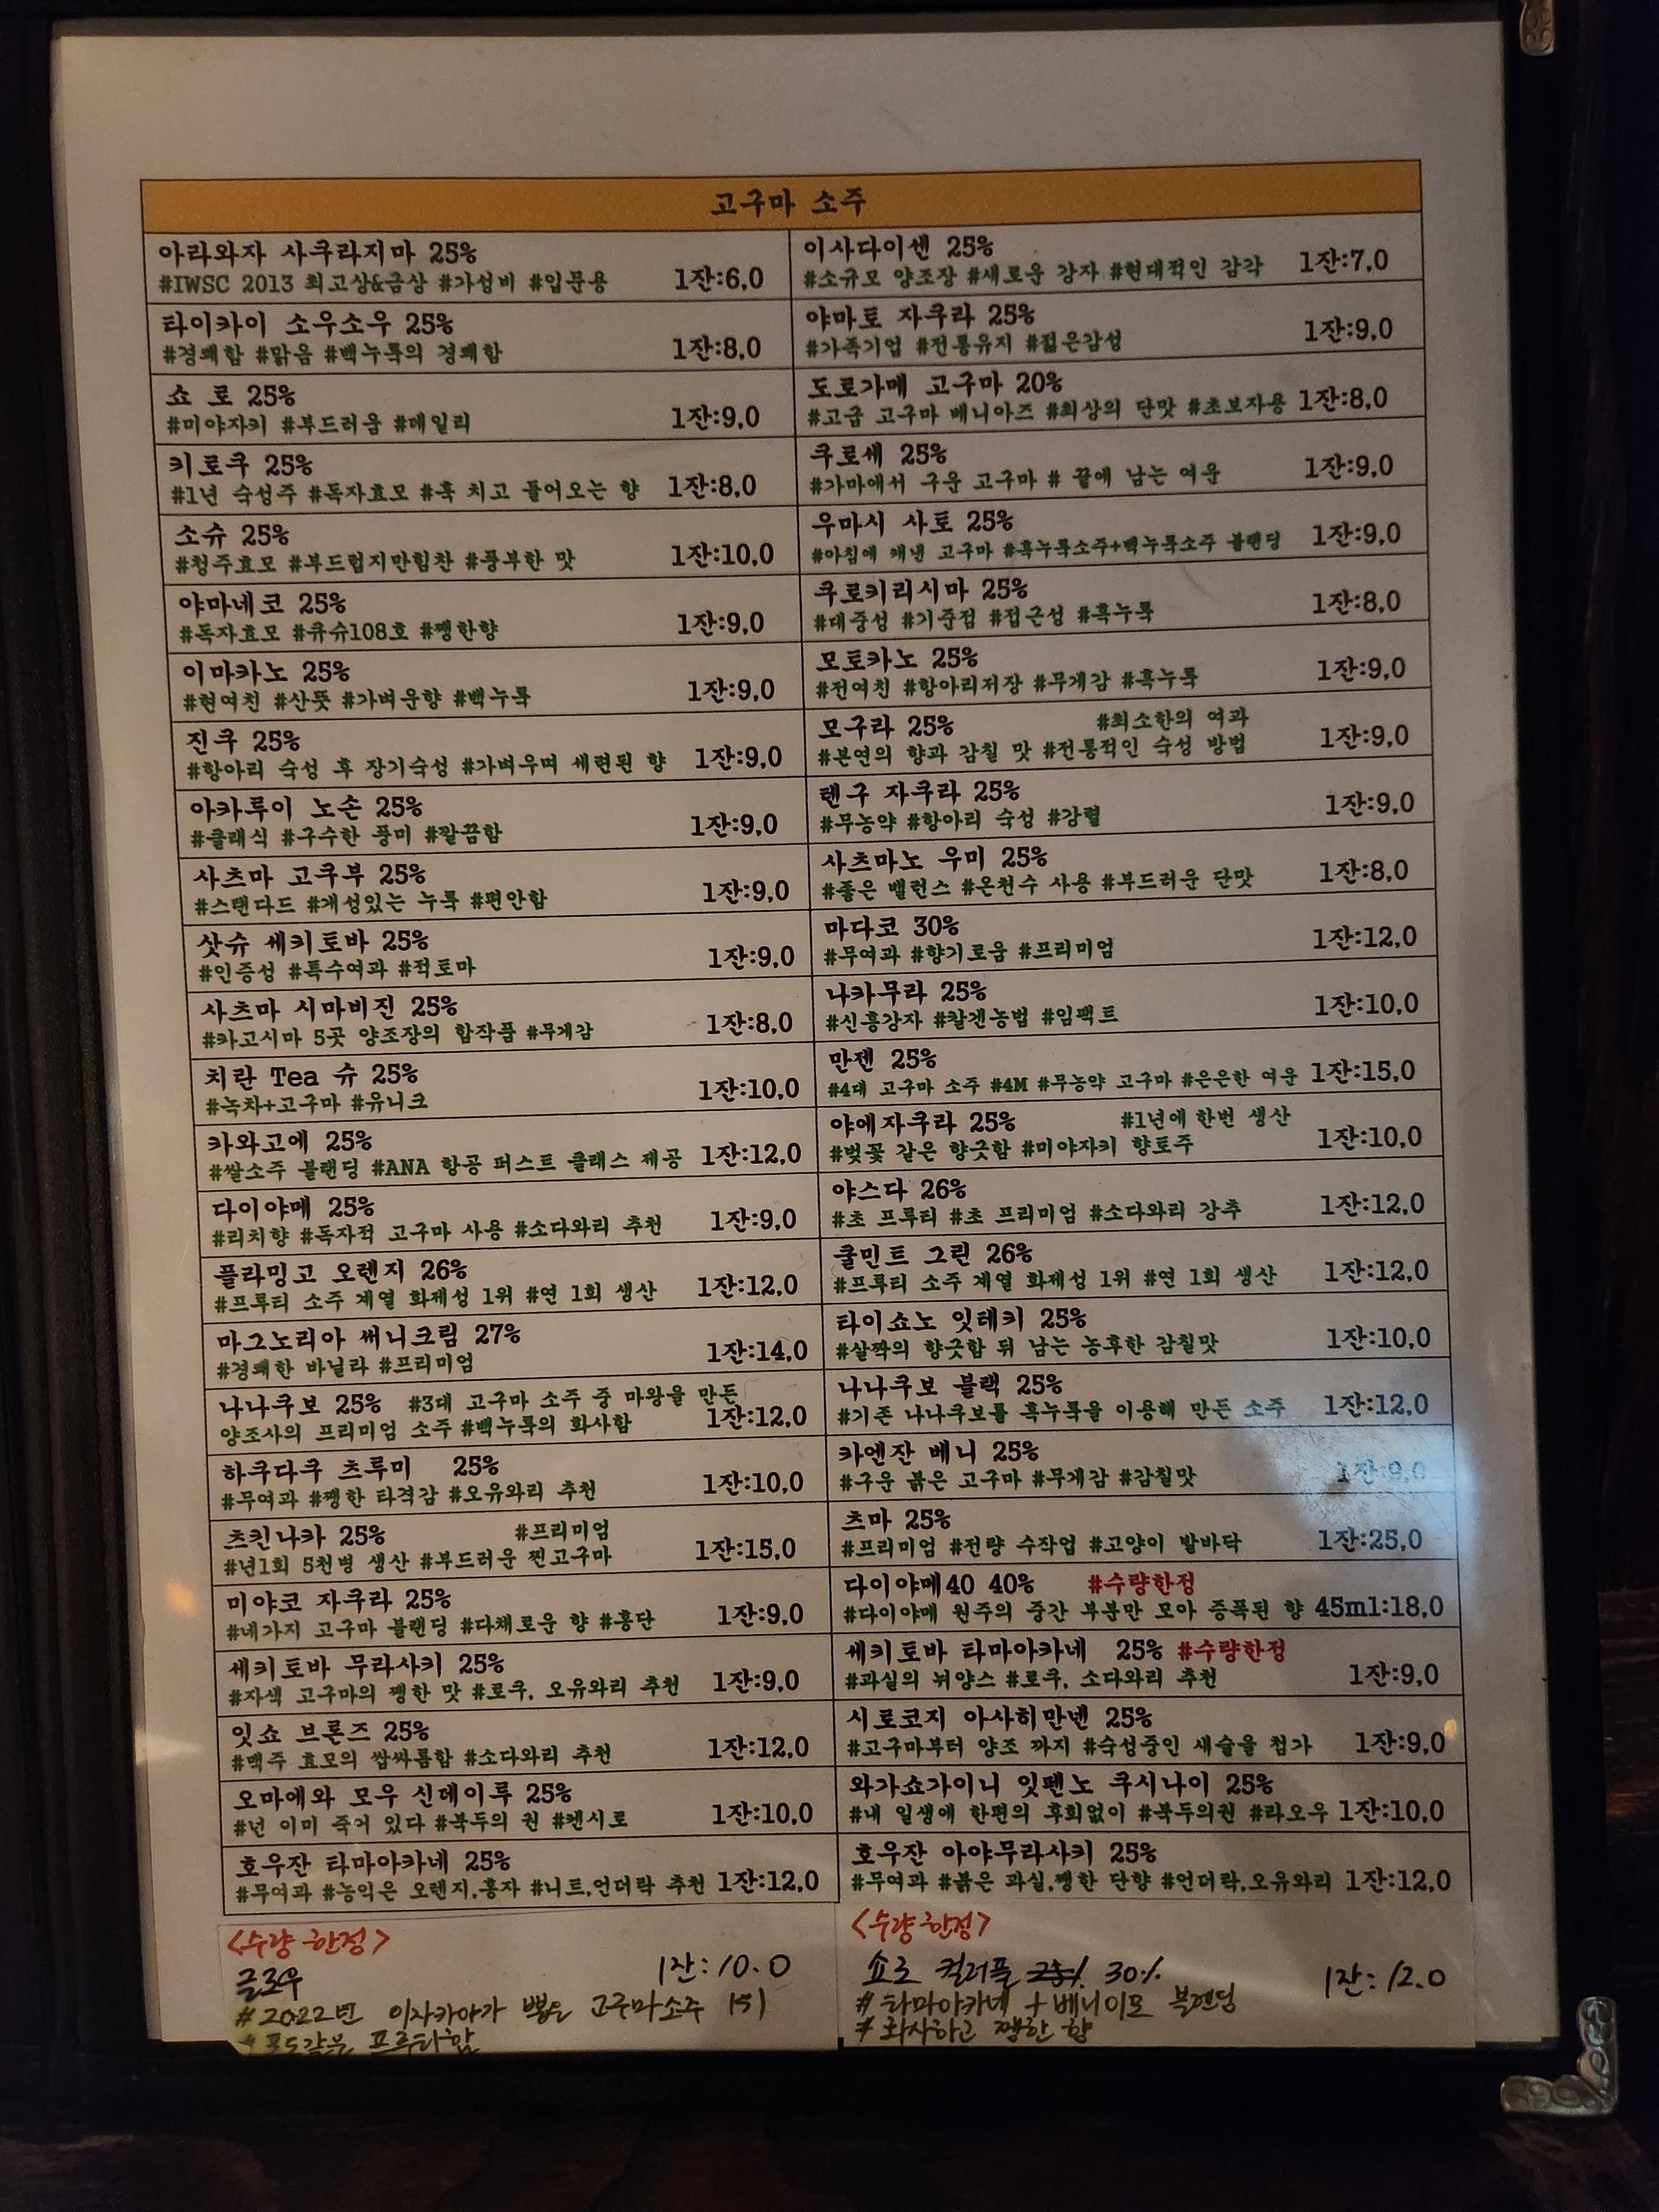 고구마 소주
아라와자 사쿠라지마 25%
#IWSC 2013 최고상&금상 #가성비 #입문용 1잔:6,0
이사다이센 25%
#소규모 양조장 #새로운 강자 #현대적인 감각 1잔:7,0
타이카이 소우소우 25%
#경쾌함 #맑음 #백누룩의 경쾌함 1잔:8,0
야마토 자쿠라 25%
#가족기업 #전통유지 #젊은감성 1잔:9,0
쇼 로 25%
#미야자키 #부드러움 #데일리 1잔:9,0
도로가메 고구마 20%
#고급 고구마 베니아즈 #최상의 단맛 #초보자용 1잔:8,0
키로쿠 25%
#1년 숙성주 #독자효모 #훅 치고 들어오는 향 1잔:8,0
쿠로세 25%
#가마에서 구운 고구마 # 끝에 남는 여운 1잔:9,0
소슈 25%
#청주효모 #부드럽지만힘찬 #풍부한 맛 1잔:10,0
우마시 사토 25%
#아침에 캐낸 고구마 #흑누룩소주+백누룩소주 블랜딩 1잔:9,0
야마네코 25%
#독자효모 #큐슈108호 #쨍한향 1잔:9,0
쿠로키리시마 25%
#대중성 #기준점 #접근성 #흑누룩 1잔:8,0
이마카노 25%
#현여친 #산뜻 #가벼운향 #백누룩 1잔:9,0
모토카노 25%
#전여친 #항아리저장 #무게감 #흑누룩 1잔:9,0
진쿠 25%
#항아리 숙성 후 장기숙성 #가벼우며 세련된 향 1잔:9,0
모구라 25% #최소한의 여과
#본연의 향과 감칠 맛 #전통적인 숙성 방법 1잔:9,0
아카루이 노손 25%
#클래식 #구수한 풍미 #깔끔함 1잔:9,0
텐구 자쿠라 25%
#무농약 #항아리 숙성 #강렬 1잔:9,0
사츠마 고쿠부 25%
#스탠다드 #개성있는 누룩 #편안함 1잔:9,0
사츠마노 우미 25%
#좋은 밸런스 #온천수 사용 #부드러운 단맛 1잔:8,0
삿슈 세키토바 25%
#인증성 #특수여과 #적토마 1잔:9,0
마다코 30%
#무여과 #향기로움 #프리미엄 1잔:12,0
사츠마 시마비진 25%
#카고시마 5곳 양조장의 합작품 #무게감 1잔:8,0
나카무라 25%
#신흥강자 #칼겐농법 #임팩트 1잔:10,0
치란 Tea 슈 25%
#녹차+고구마 #유니크 1잔:10,0
만젠 25%
#4대 고구마 소주 #4M #무농약 고구마 #은은한 여운 1잔:15,0
카와고에 25%
#쌀소주 블랜딩 #ANA 항공 퍼스트 클래스 제공 1잔:12,0
야에자쿠라 25% #1년에 한번 생산
#벚꽃 같은 향긋함 #미야자키 향토주 1잔:10,0
다이야메 25%
#리치향 #독자적 고구마 사용 #소다와리 추천 1잔:9,0
야스다 26%
#초 프루티 #초 프리미엄 #소다와리 강추 1잔:12,0
플라밍고 오렌지 26%
#프루티 소주 계열 화제성 1위 #연 1회 생산 1잔:12,0
쿨민트 그린 26%
#프루티 소주 계열 화제성 1위 #연 1회 생산 1잔:12,0
마그노리아 써니크림 27%
#경쾌한 바닐라 #프리미엄 1잔:14,0
타이쇼노 잇테키 25%
#살짝의 향긋함 뒤 남는 농후한 감칠맛 1잔:10,0
나나쿠보 25% #3대 고구마 소주 중 마왕을 만든
양조사의 프리미엄 소주 #백누룩의 화사함 1잔:12,0
나나쿠보 블랙 25%
#기존 나나쿠보를 흑누룩을 이용해 만든 소주 1잔:12,0
하쿠다쿠 츠루미 25%
#무여과 #쨍한 타격감 #오유와리 추천 1잔:10,0
카엔잔 베니 25%
#구운 붉은 고구마 #무게감 #감칠맛 1잔:9,0
츠킨나카 25% #프리미엄
#년1회 5천병 생산 #부드러운 찐고구마 1잔:15,0
츠마 25%
#프리미엄 #전량 수작업 #고양이 발바닥 1잔:25,0
미야코 자쿠라 25%
#네가지 고구마 블랜딩 #다채로운 향 #홍단 1잔:9,0
다이야메40 40% #수량한정
#다이야메 원주의 중간 부분만 모아 증폭된 향 45ml:18,0
세키토바 무라사키 25%
#자색 고구마의 쨍한 맛 #로쿠, 오유와리 추천 1잔:9,0
세키토바 타마아카네 25% #수량한정
#과실의 뉘앙스 #로쿠, 소다와리 추천 1잔:9,0
잇쇼 브론즈 25%
#맥주 효모의 쌉싸름함 #소다와리 추천 1잔:12,0
시로코지 아사히만넨 25%
#고구마부터 양조 까지 #숙성중인 새술을 첨가 1잔:9,0
오마에와 모우 신데이루 25%
#넌 이미 죽어 있다 #북두의 권 #켄시로 1잔:10,0
와가쇼가이니 잇펜노 쿠시나이 25%
#내 일생에 한편의 후회없이 #북두의권 #라오우 1잔:10,0
호우잔 타마아카네 25%
#무여과 #농익은 오렌지,홍자 #니트,언더락 추천 1잔:12,0
호우잔 아야무라사키 25%
#무여과 #붉은 과실,쨍한 단향 #언더락,오유와리 1잔:12,0
<수량 한정>
글로우 1잔: 10.0
#2022년 이자카야가 뽑은 고구마소주 1위
#포도같은 프루티함
<수량 한정>
쇼로 컬러풀 30% 1잔: 12.0
# 타마아카네 + 베니이모 블렌딩
# 화사하고 쨍한 향